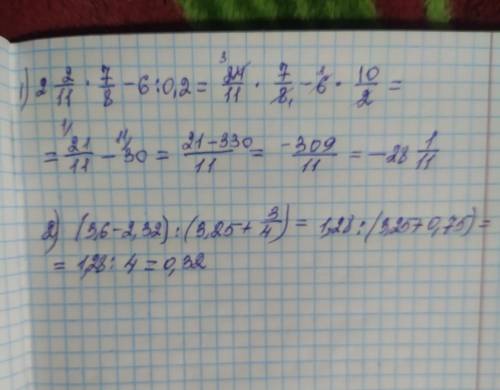 1) 2 2/11 · 7/8 - 6 : 0,2 = 24/11 · 7/8 - 6 · 10/2 =
= 21/11 - 30 = 21-330/11 = -309/11 = -28 1/11
2) (3,6 - 2,32) : (3,25 + 3/4) = 1,28 : (3,25 + 0,75) =
= 1,28 : 4 = 0,32